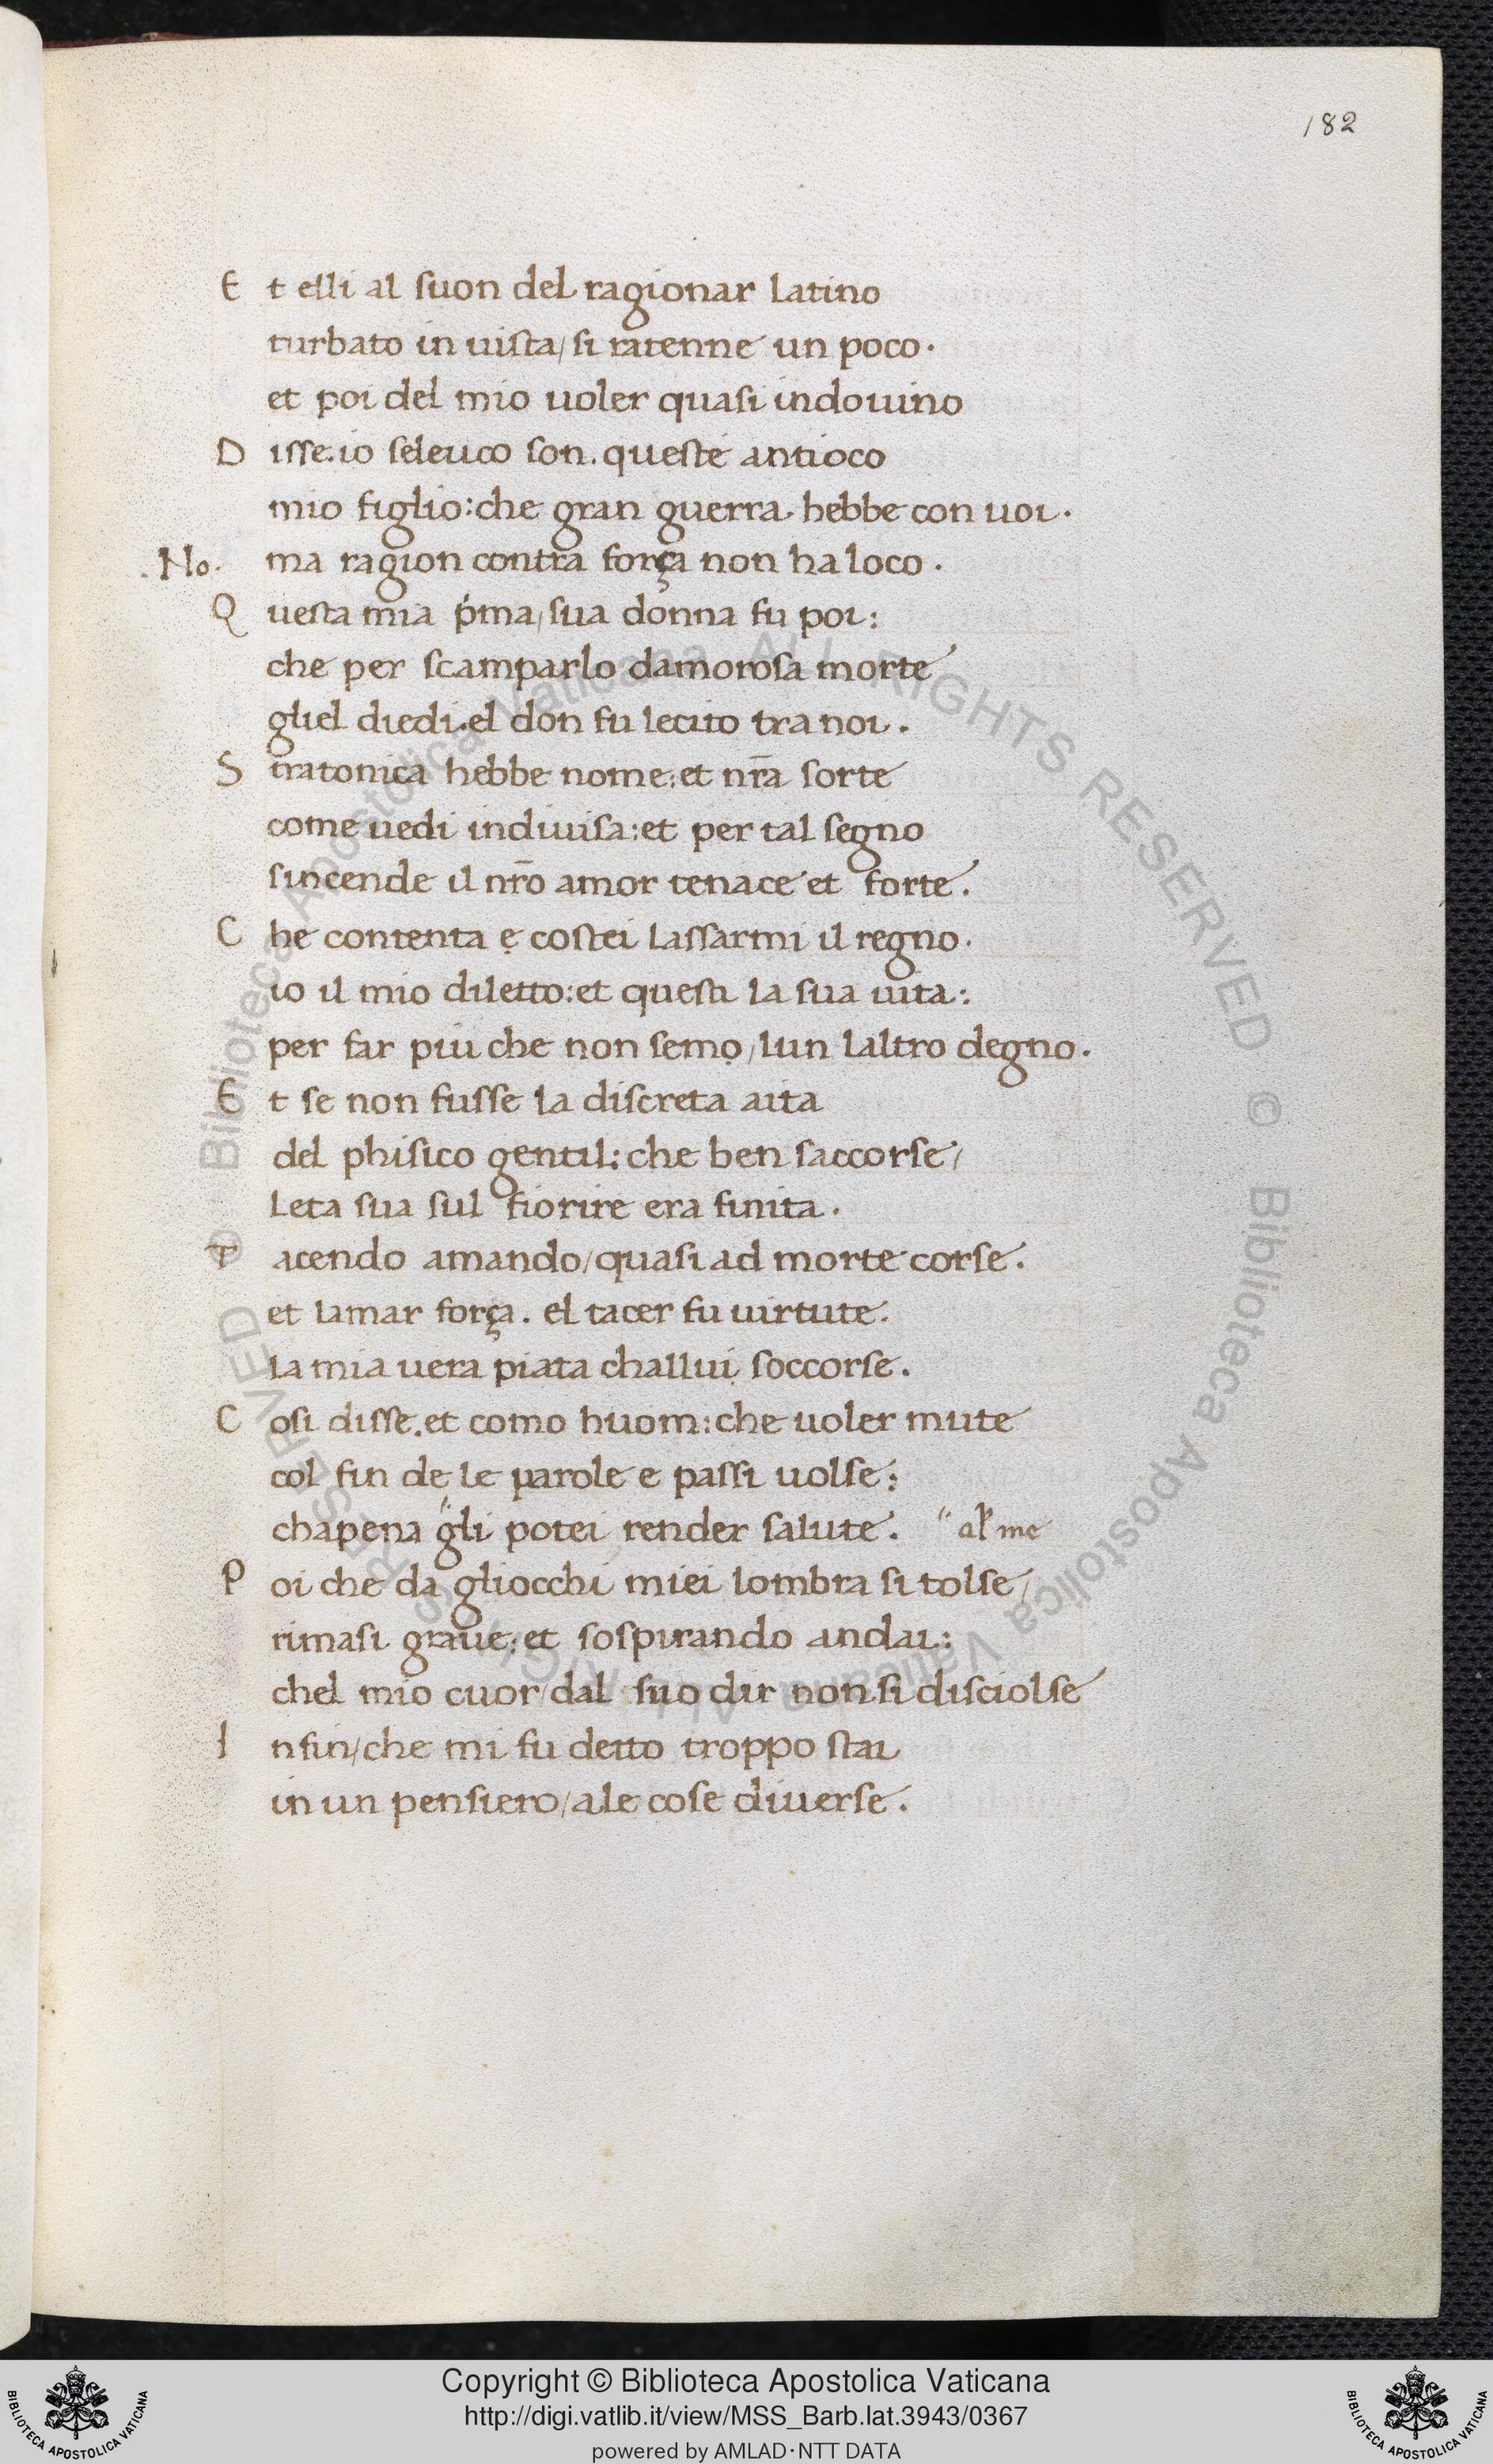 182
Et elli al suon del ragionar latino
turbato in uista/ si ratenne un poco.
et poi del mio uoler quasi indouino
Disse. io seleuco son. queste antioco
mio figlio: che gran guerra hebbe con uoi.
.No. ma ragion contra força non ha loco.
Questa mia p̍ma/ sua donna fu poi:
che per scamparlo damorosa morte
gliel diedi. el don fu lecito tra noi.
Stratonica hebbe nome: et nr̄a sorte
come uedi indiuisa: et per tal segno
sincende il nr̄o amor tenace et forte.
Che contenta ẹ costei lassarmi il regno.
io il mio diletto: et questi la sua uita:
per far piu che non semo/ lun laltro degno.
Et se non fusse la discreta aita
del phisico gentil: che ben saccorse/
Leta sua sul fiorire era finita.
Tacendo amando/ quasi ad morte corse.
et lamar força. el tacer fu uirtute.
La mia uera piata challui soccorse.
Cosi disse. et como huom: che uoler mute
col fin de le parole e passi uolse:
chapena "gli potei render salute. " al' me
Poi che da gliocchi miei lombra si tolse/
rimasi graue: et sospirando andai:
chel mio cuor/ dal suo dir non si disciolse
Infin/ che mi fu detto troppo stai
in un pensiero/ ale cose diuerse.
© Biblioteca Apostolica Vaticana ALL RIGHTS RESERVED © Biblioteca Apostolica Vaticana ALL RIGHTS RESERVED
BIBLIOTECA APOSTOLICA VATICANA
Copyright © Biblioteca Apostolica Vaticana
http://digi.vatlib.it/view/MSS_Barb.lat.3943/0367
powered by AMLAD·NTT DATA
BIBLIOTECA APOSTOLICA VATICANA